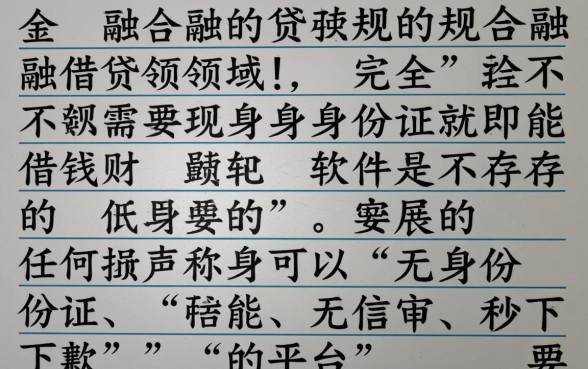 金 融合融的贷规的规合融
融借贷领领域!， 完全”不
不需要现身身身份证就即能
借钱财 软件是不存存
的 低要的”。展的
任何损声称身可以“无身份
份证、“能、无信审、秒下
下歉””“的平台” 要